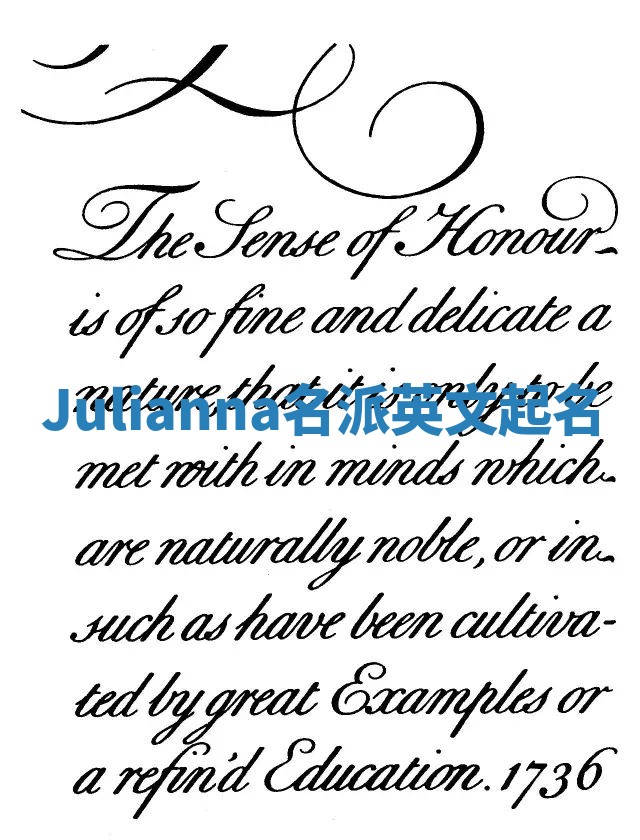 The Sense of Honour
is of so fine and delicate a
nature, that it is only to be
Julianna名派英文起名
met with in minds which
are naturally noble, or in
such as have been cultiva-
ted by great Examples or
a refin'd Education. 1736